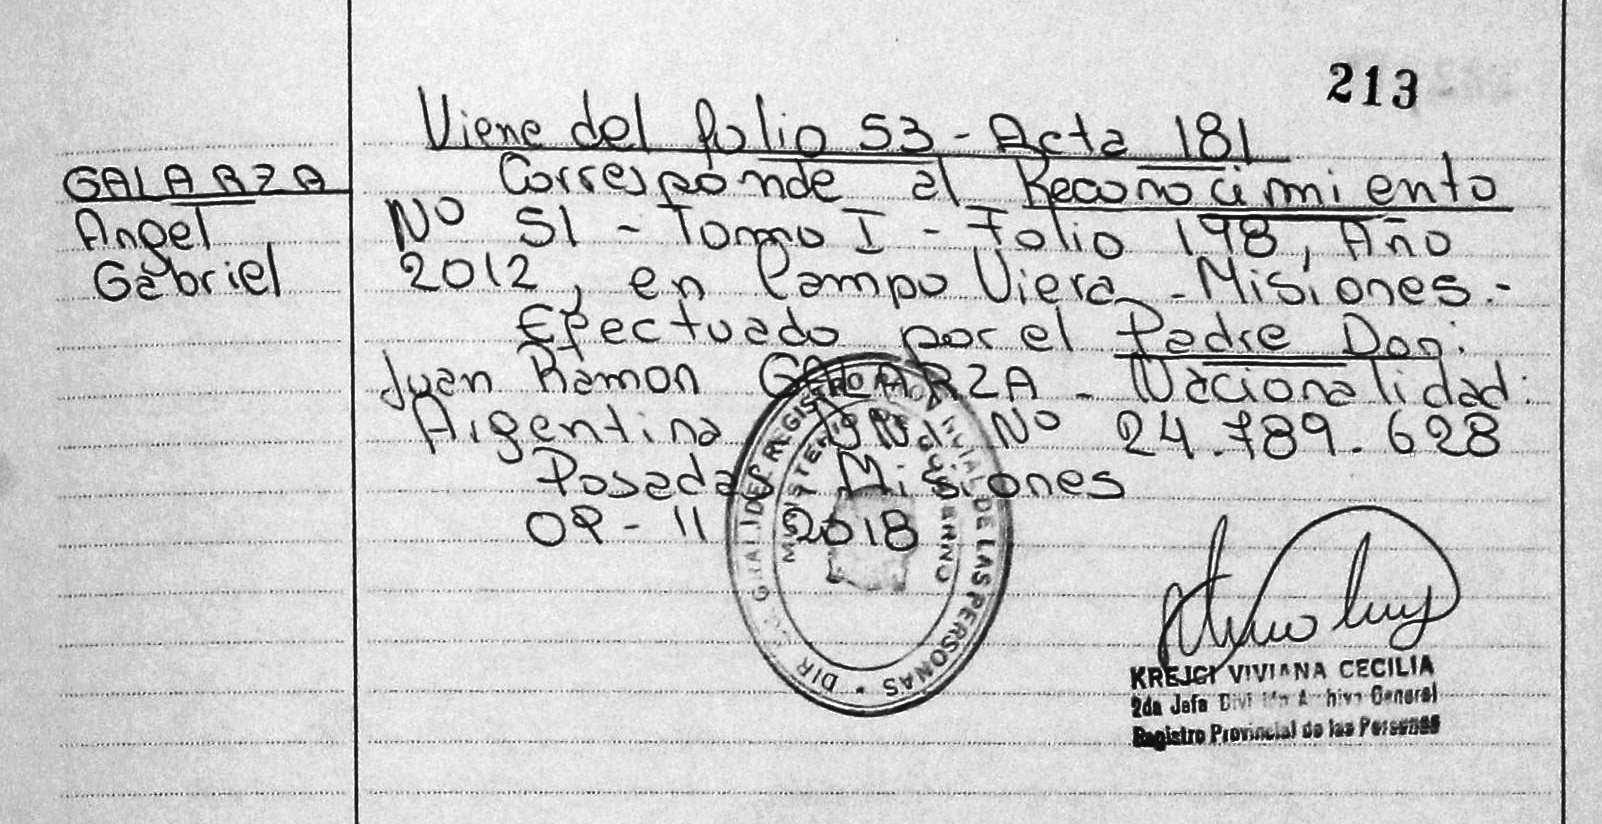 213
Viene del folio 53 - Acta 181
GALARZA
Angel
Gabriel
Corresponde al Reconocimiento
Nº 51 - Tomo I - Folio 198, Año
2012, en Campo Viera - Misiones.-
Efectuado por el Padre Don:
Juan Ramon GALARZA - Nacionalidad:
Argentina DNI Nº 24.789.628
Posadas Misiones
09 - 11 2018
DIR GRAL DEL REGISTRO PROVINCIAL DE LAS PERSONAS
MINISTERIO DE GOBIERNO
KREJCI VIVIANA CECILIA
2da Jefa División Archivo General
Registro Provincial de las Personas